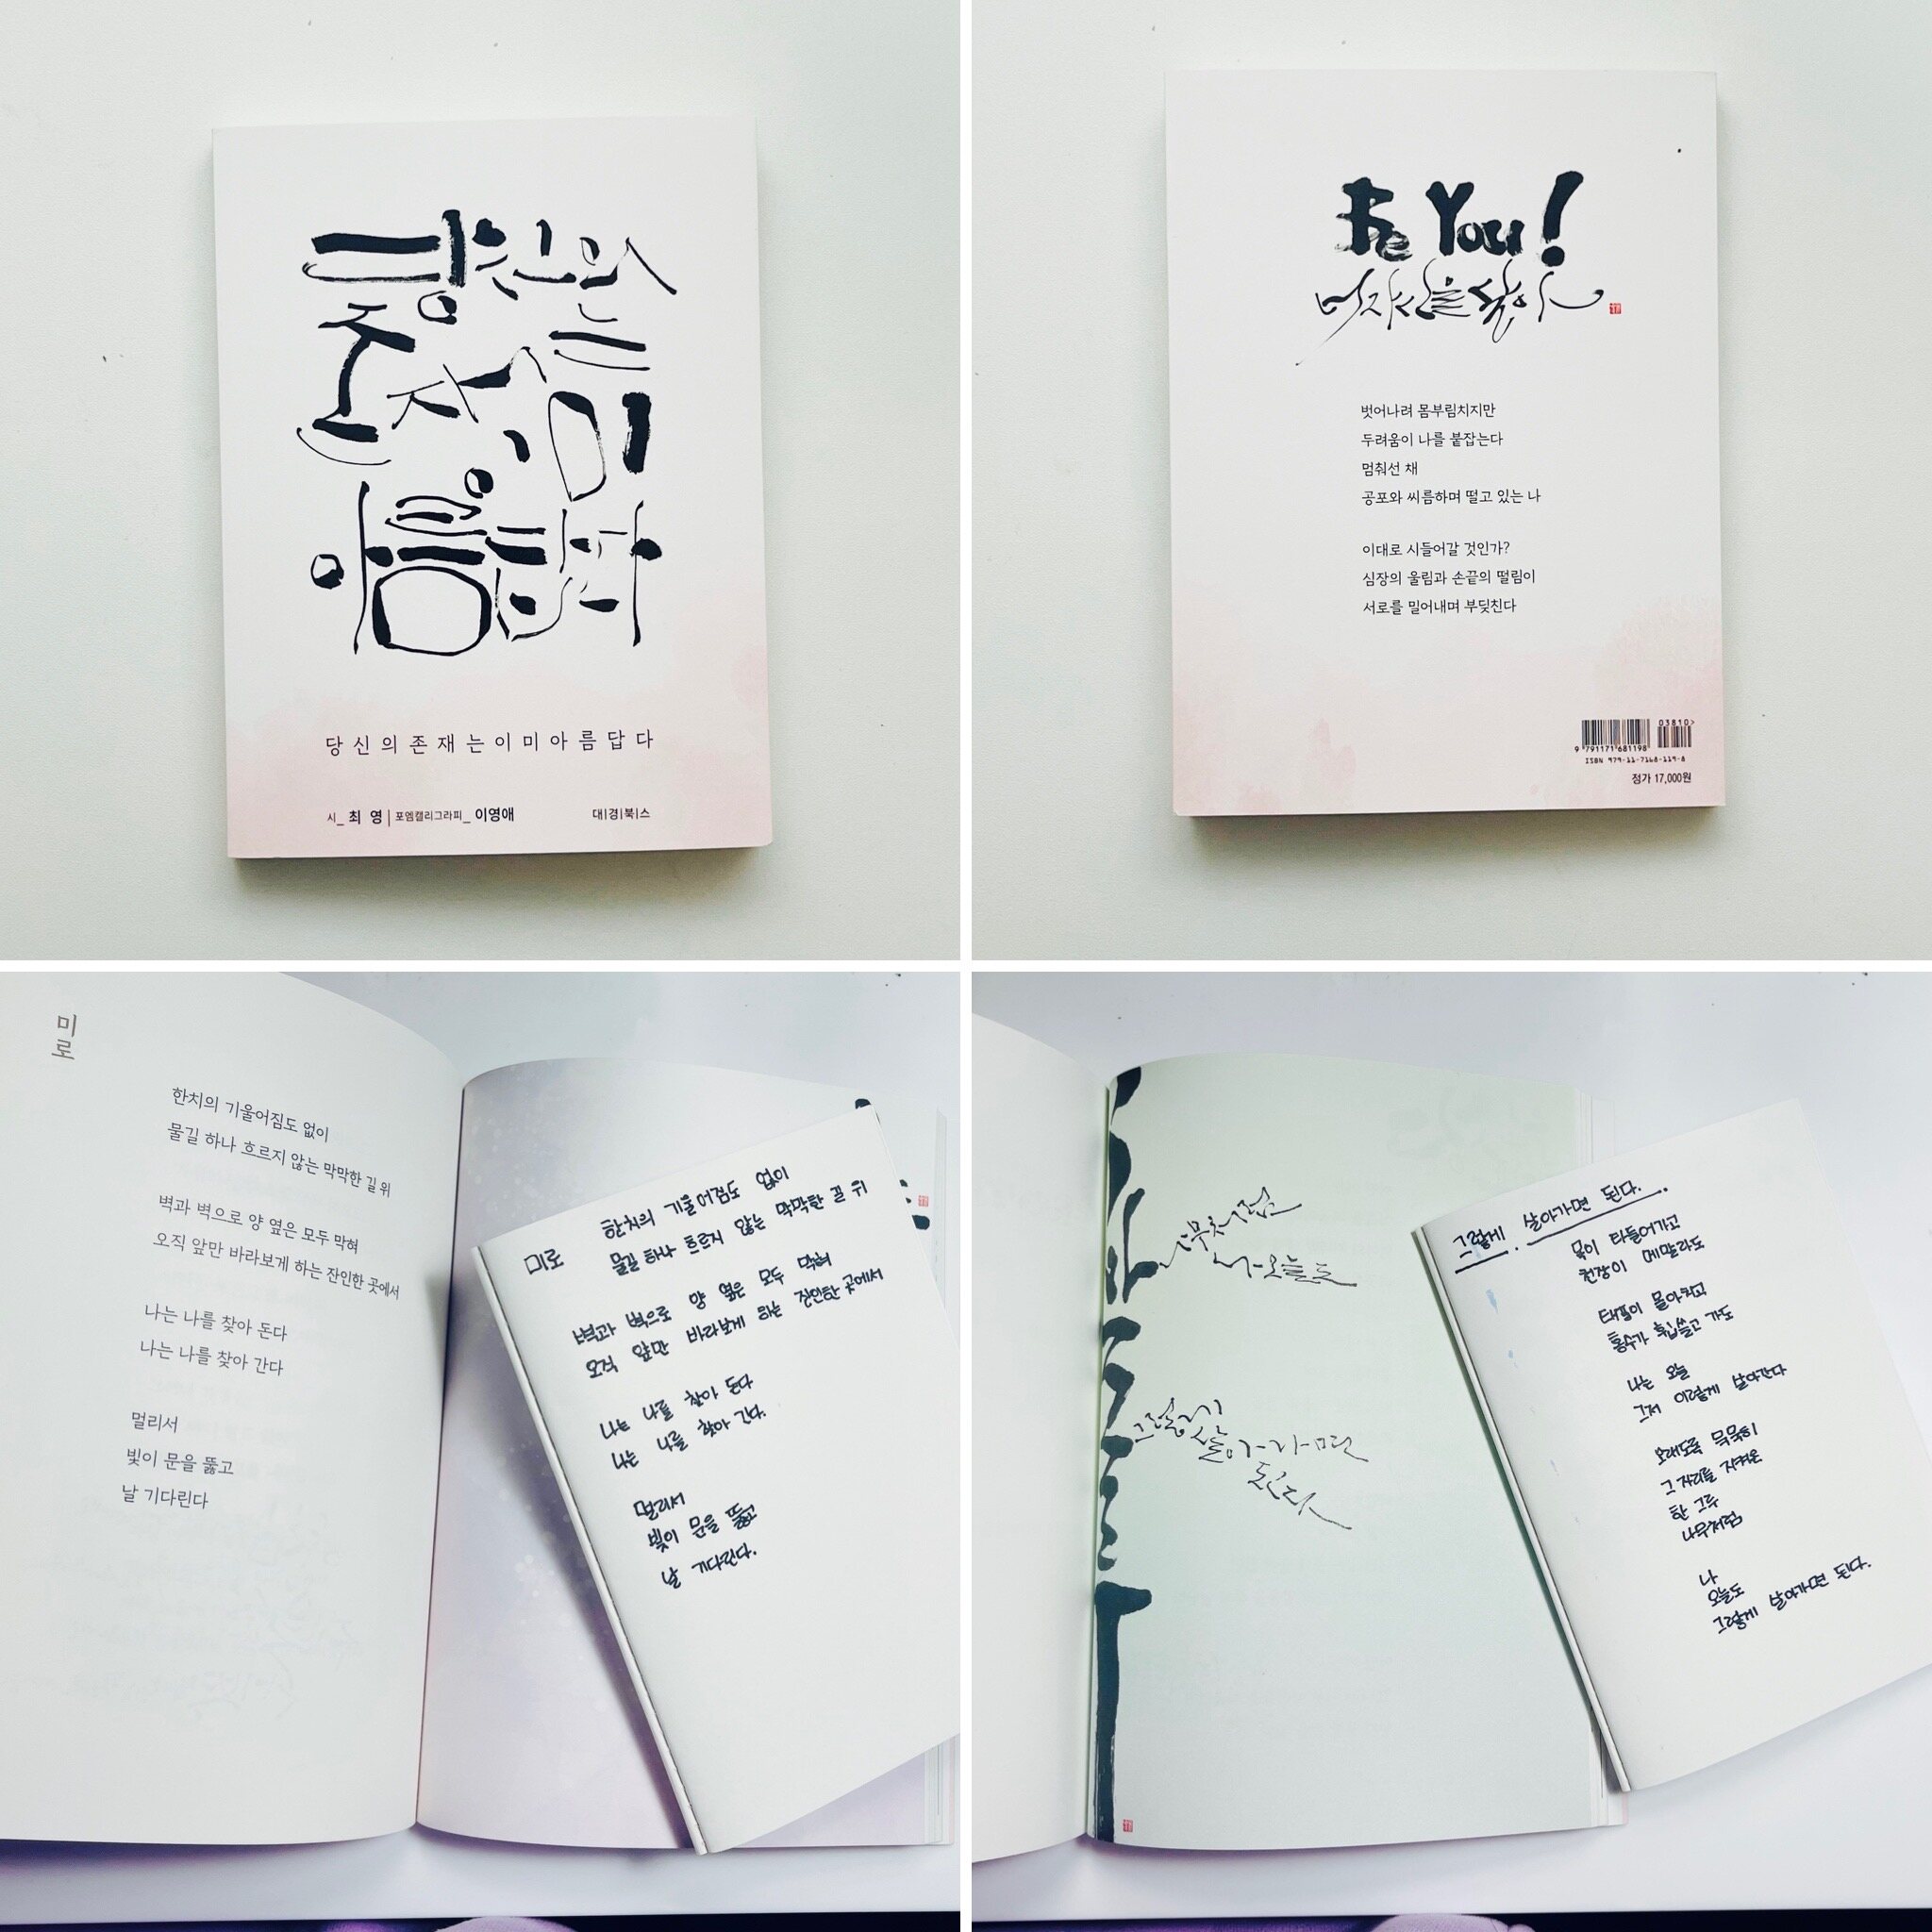 당신의
존재는
이미
아름답다
당신의존재는이미아름답다
시_ 최 영 | 포엠캘리그라피_ 이영애
대|경|북|스
Be You!
너 자신을 살아
벗어나려 몸부림치지만
두려움이 나를 붙잡는다
멈춰선 채
공포와 씨름하며 떨고 있는 나
이대로 시들어갈 것인가?
심장의 울림과 손끝의 떨림이
서로를 밀어내며 부딪친다
03810
9 791171 681198
ISBN 979-11-7168-119-8
정가 17,000원
미로
한치의 기울어짐도 없이
물길 하나 흐르지 않는 막막한 길 위
벽과 벽으로 양 옆은 모두 막혀
오직 앞만 바라보게 하는 잔인한 곳에서
나는 나를 찾아 돈다
나는 나를 찾아 간다
멀리서
빛이 문을 뚫고
날 기다린다
미로
한치의 기울어짐도 없이
물길 하나 흐르지 않는 막막한 길 위
벽과 벽으로 양 옆은 모두 막혀
오직 앞만 바라보게 되는 잔인한 곳에서
나는 나를 찾아 돈다
나는 나를 찾아 간다.
멀리서
빛이 문을 뚫고
날 기다린다.
나무처럼
나 오늘도
그렇게
살아가면
된다
그렇게 살아가면 된다.
몸이 타들어가고
천장이 메말라도
태풍이 몰아치고
홍수가 휩쓸고 가도
나는 오늘
그저 이렇게 살아간다
오래도록 묵묵히
그 자리를 지켜온
한 그루
나무처럼
나
오늘도
그렇게 살아가면 된다.